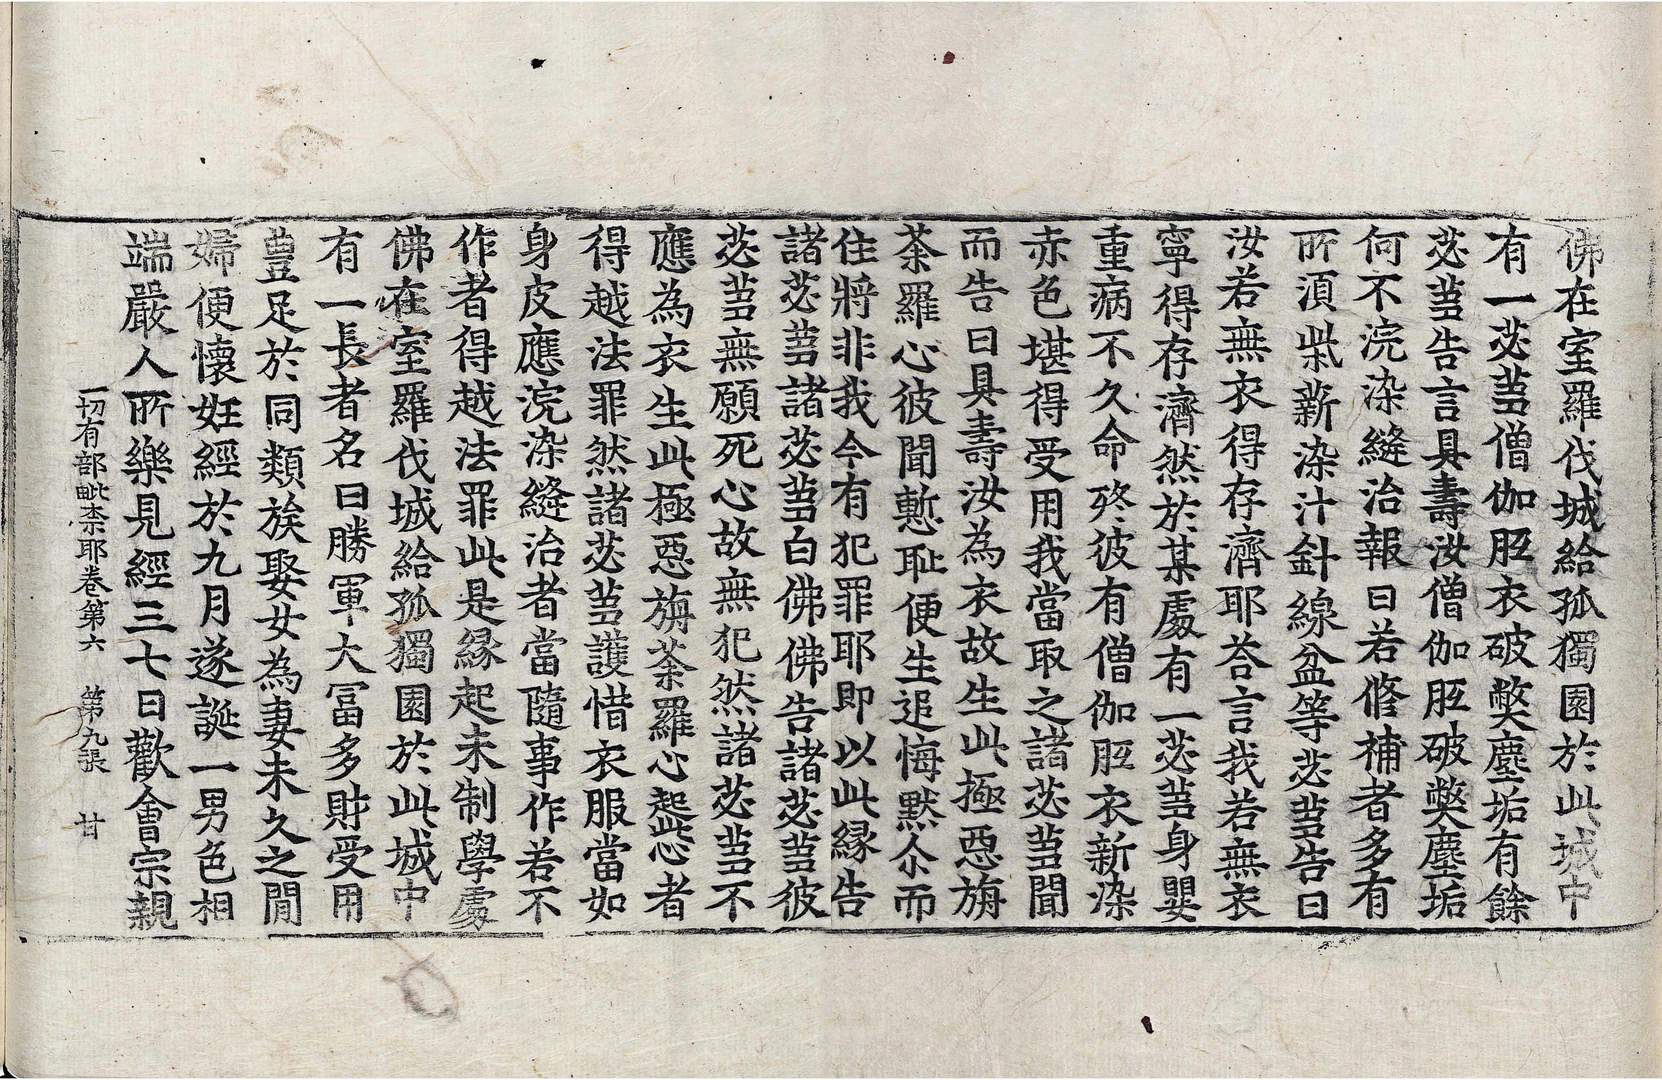 佛在室羅伐城給孤獨園於此城中
有一苾芻僧伽胝衣破弊塵垢有餘
苾芻告言具壽汝僧伽胝破弊塵垢
何不浣染縫治報曰若修補者多有
所湏柴薪染汁針線盆等苾芻告曰
汝若無衣得存濟耶荅言我若無衣
寧得存濟然於某處有一苾芻身嬰
重病不久命終彼有僧伽胝衣新染
赤色堪得受用我當取之諸苾芻聞
而告曰具壽汝為衣故生此極惡旃
荼羅心彼聞慙耻便生追悔默尒而
住將非我今有犯罪耶即以此緣告
諸苾芻諸苾芻白佛佛告諸苾芻彼
苾芻無願死心故無犯然諸苾芻不
應為衣生此極惡旃荼羅心起心者
得越法罪然諸苾芻護惜衣服當如
身皮應浣染縫治者當隨事作若不
作者得越法罪此是緣起未制學處
佛在室羅伐城給孤獨園於此城中
有一長者名曰勝軍大冨多財受用
豊足於同類族娶女為妻未久之閒
婦便懷妊經於九月遂誕一男色相
端嚴人所樂見經三七日歡會宗親
一切有部毗柰耶卷第六 第九張 甘